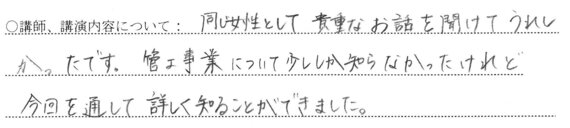 ○講師、講演内容について： 同じ女性として貴重なお話を聞けてうれし
かったです。管工事業について少ししか知らなかったけれど
今回を通して詳しく知ることができました。